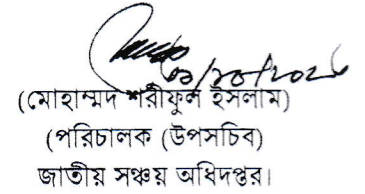 (মোহাম্মদ শরীফুল ইসলাম)
(পরিচালক (উপসচিব)
জাতীয় সঞ্চয় অধিদপ্তর।